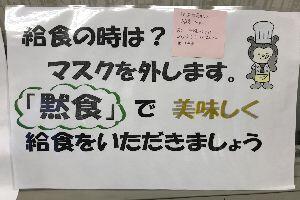 給食の時は？
マスクを外します。
「黙食」で 美味しく
給食をいただきましょう